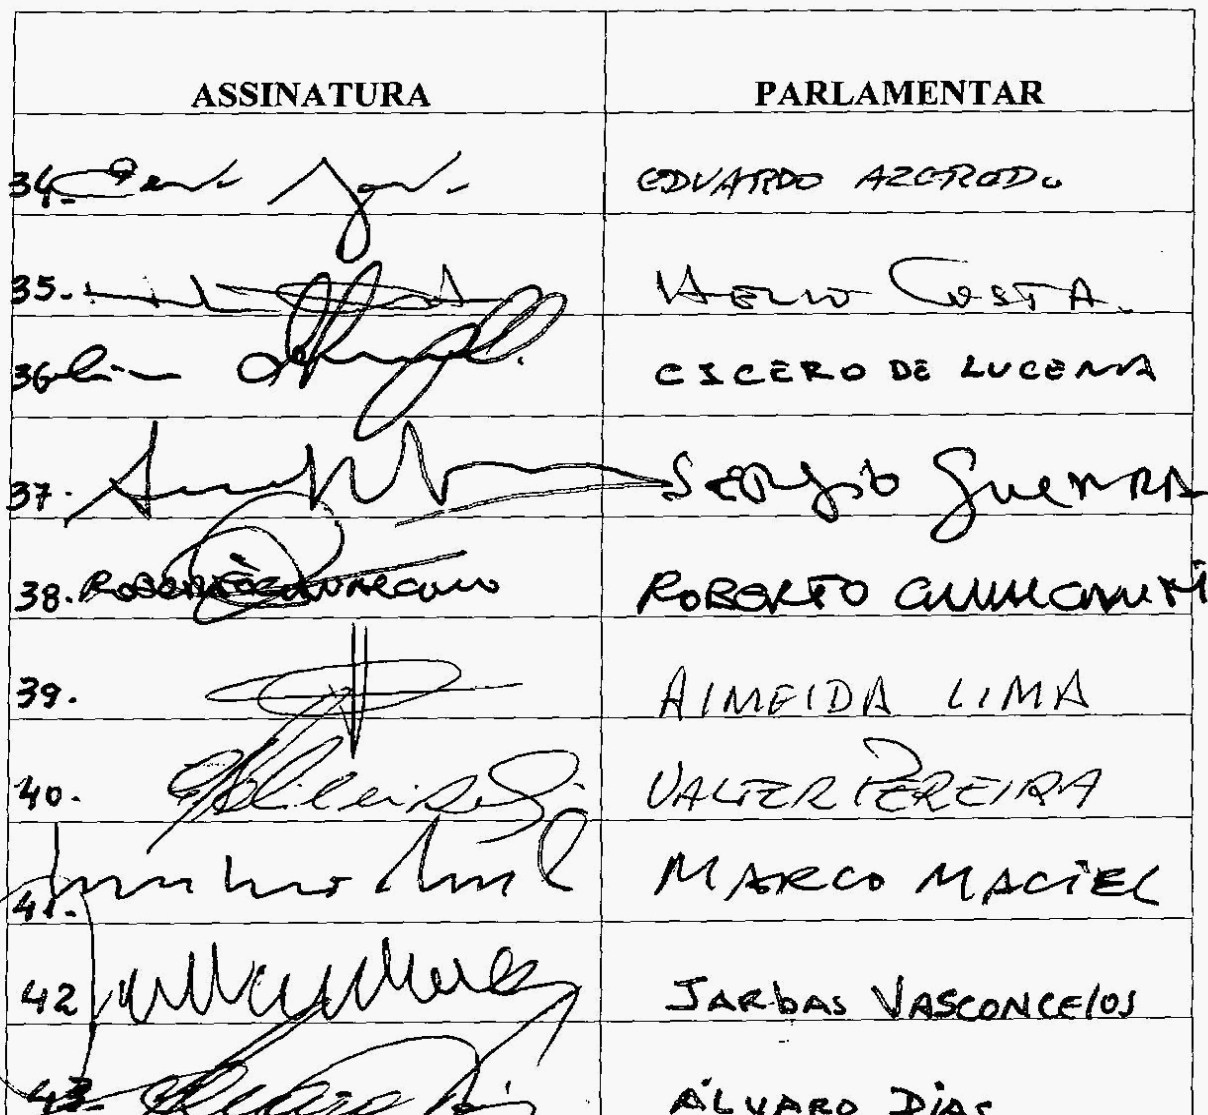 ASSINATURA PARLAMENTAR
34. EDUARDO AZEREDO
35. HELIO COSTA.
36 CICERO DE LUCENA
37. SERGIO GUERRA
38. ROBERTO CAVALCANTI ROBERTO CAVALCANTI
39. ALMEIDA LIMA
40. VALTER PEREIRA
41. MARCO MACIEL
42 JARBAS VASCONCELOS
43. ÁLVARO DIAS